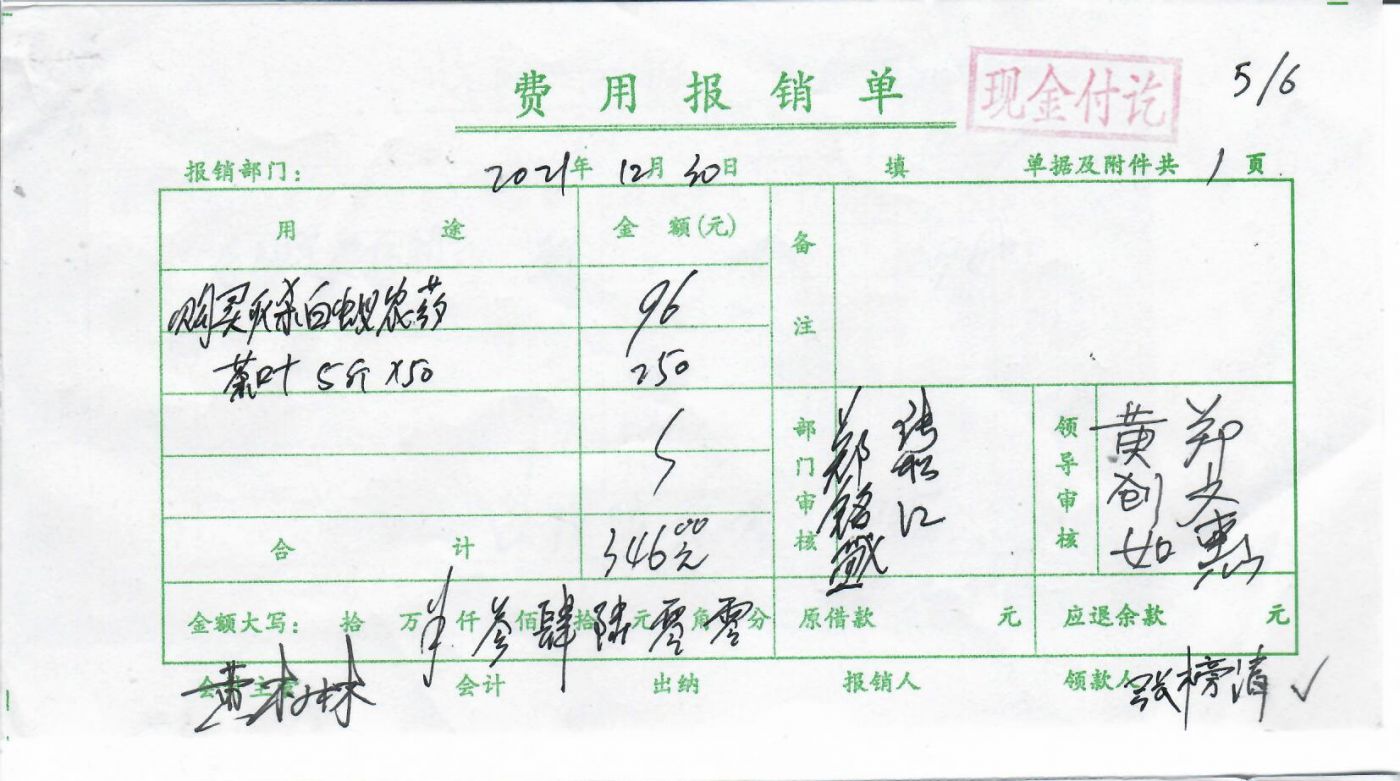 费用报销单
现金付讫
5/6
报销部门： 2021年 12月 30日 填 单据及附件共 1 页
用途 金额(元) 备注
购买杀白蚁农药 96
茶叶 5斤 ×50 250
合计 346元00
部门审核 郑铭 江
领导审核 黄创如 郑文惠
金额大写： 拾 万 仟 叁 佰 肆 拾 陆 元 零 角 零 分 原借款 元 应退余款 元
会计主管 黄林 会计 出纳 报销人 领款人 张榜清 ✓